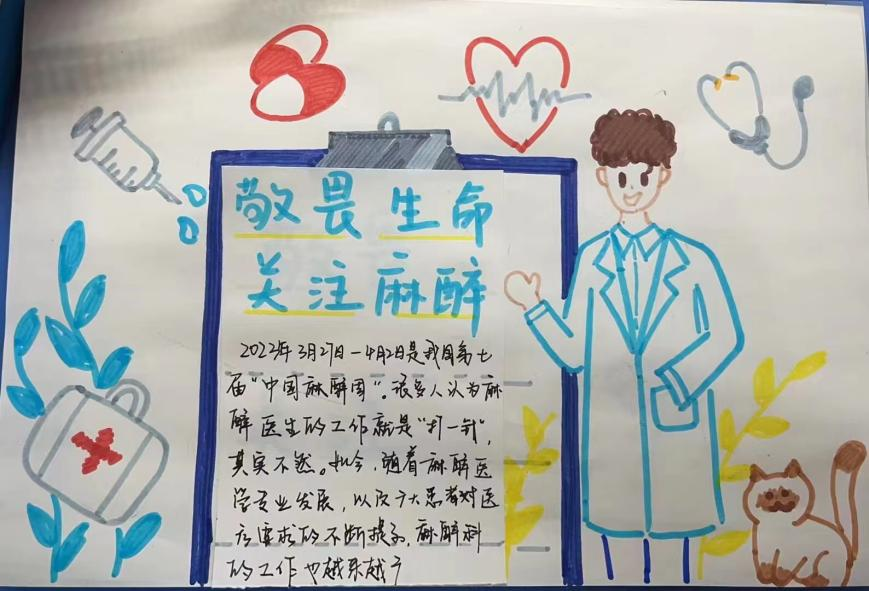 敬畏生命
关注麻醉
2023年3月27日-4月2日是我国第七
届"中国麻醉周"。很多人认为麻
醉医生的工作就是"打一针",
其实不然。如今,随着麻醉医
学专业发展,以及广大患者对医
疗要求的不断提高,麻醉科
的工作也越来越广